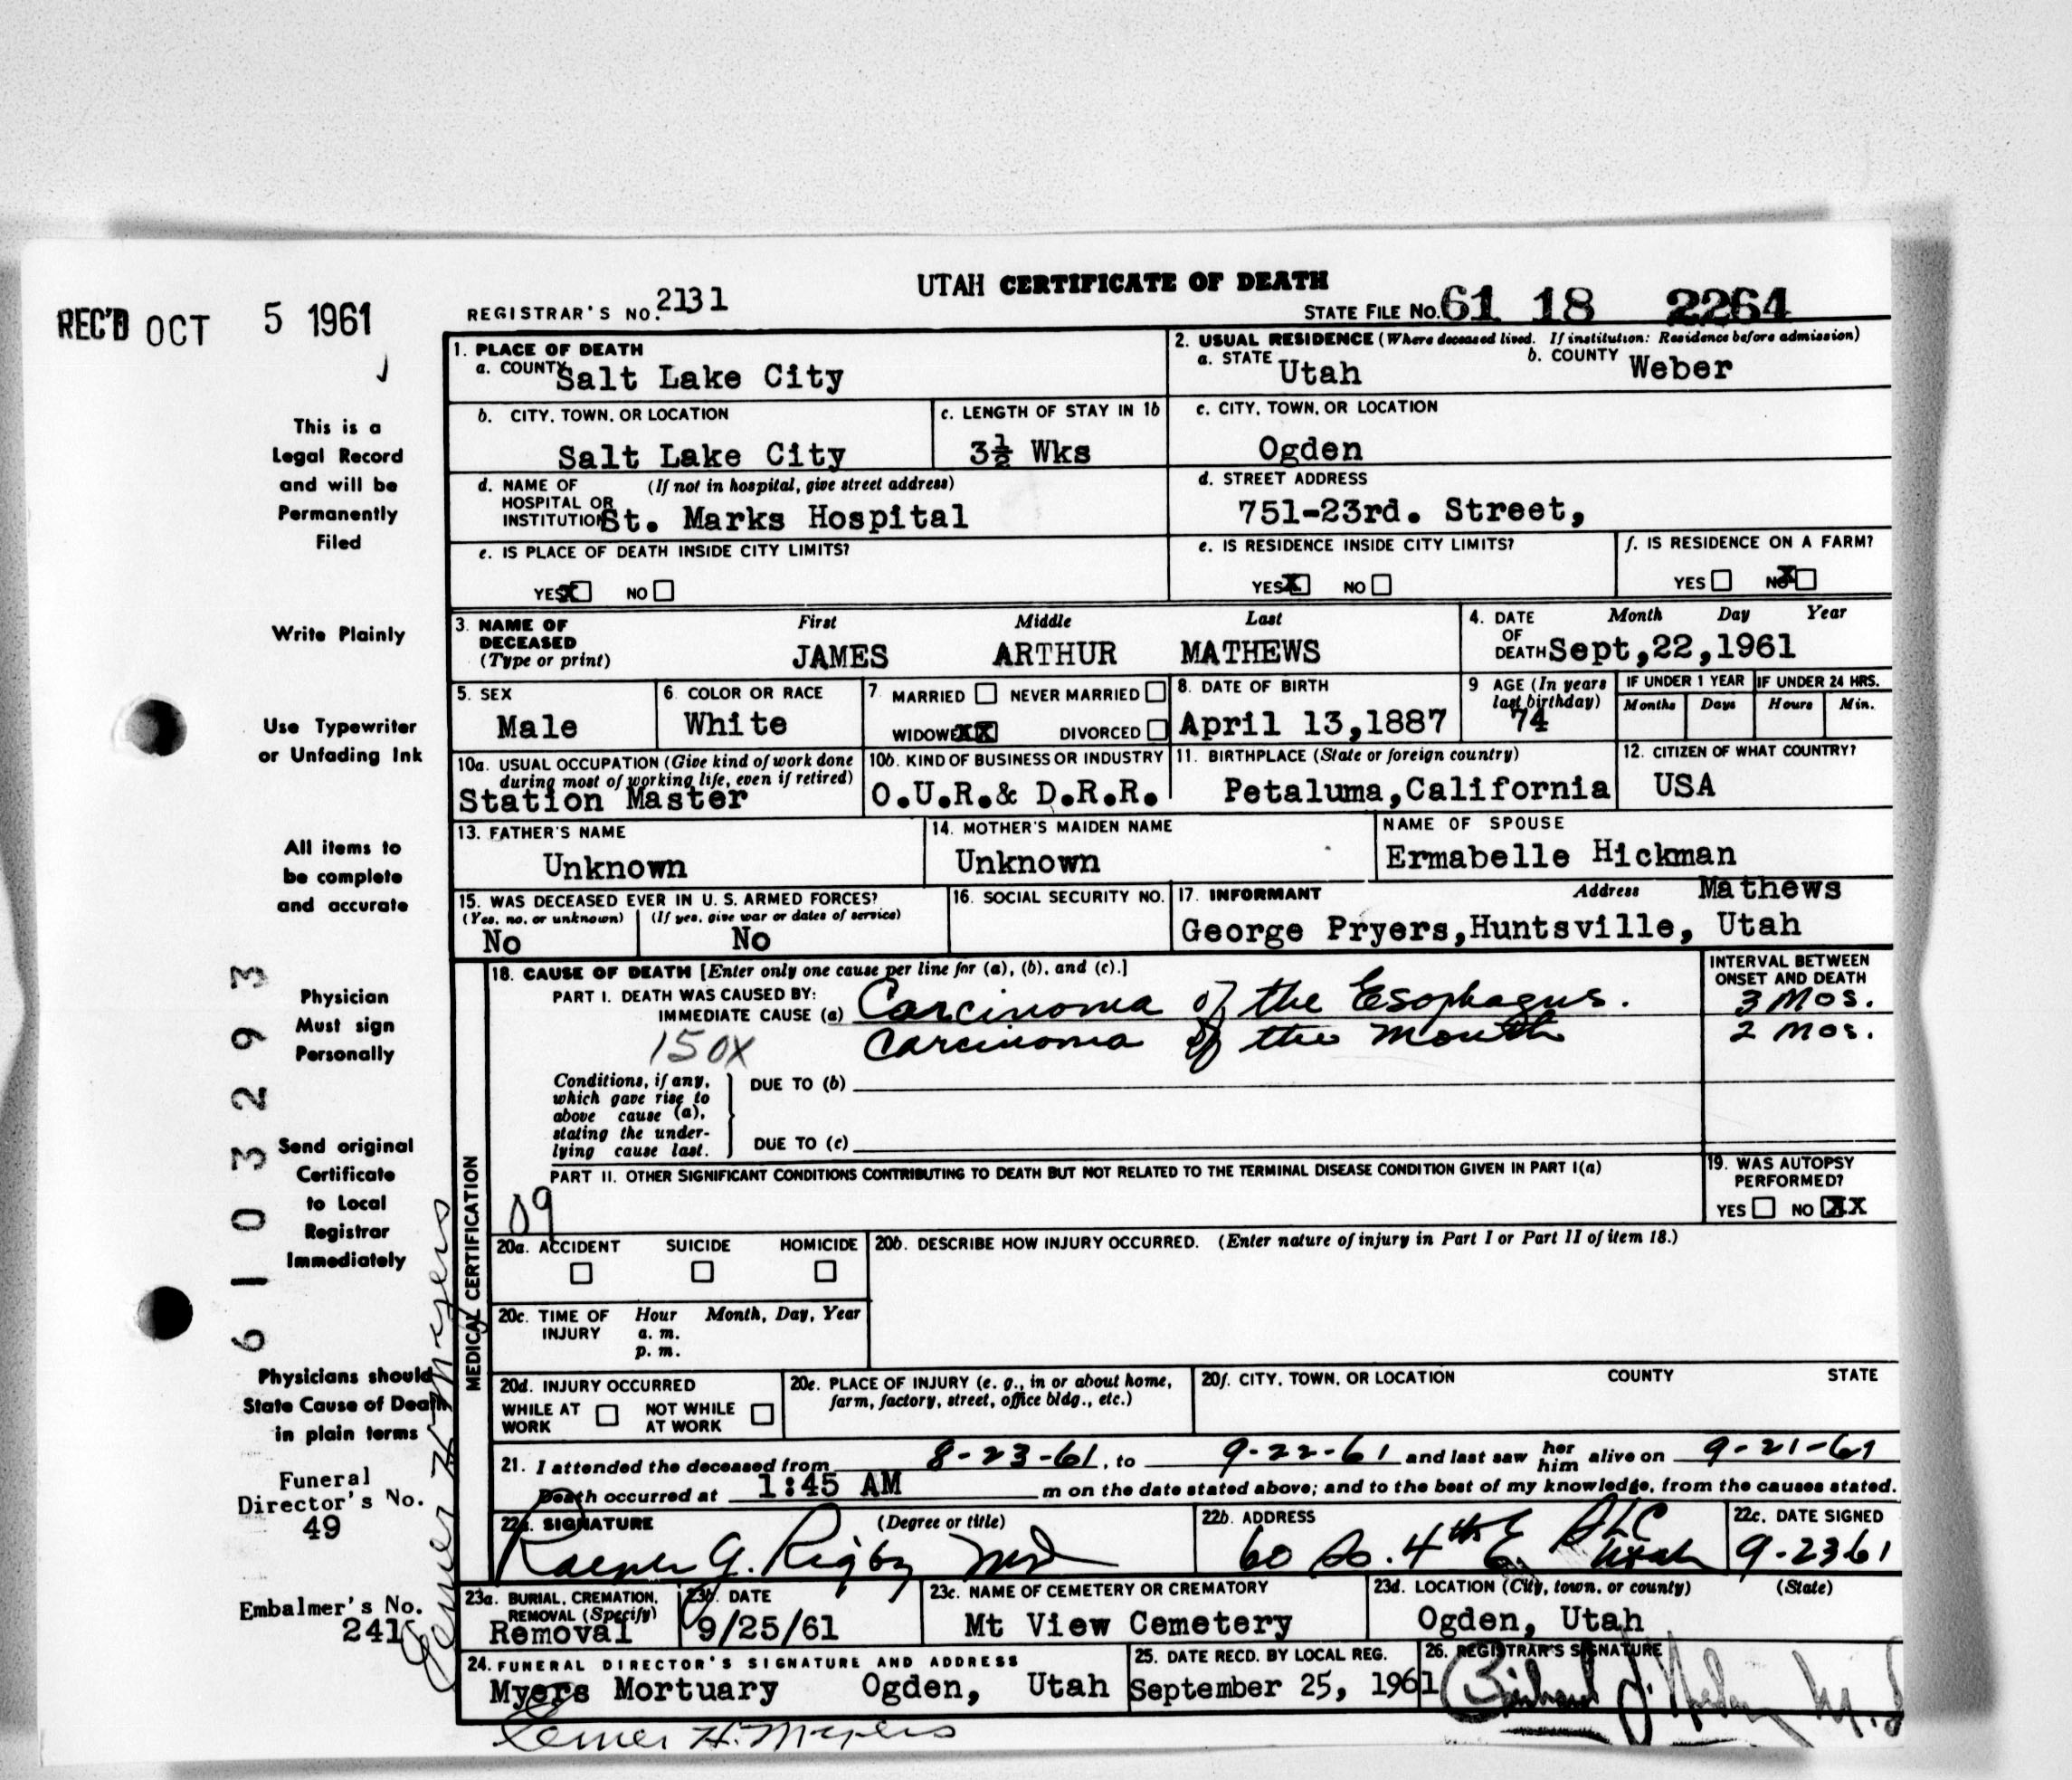 UTAH CERTIFICATE OF DEATH
REC'D OCT 5 1961
REGISTRAR'S NO. 2131
STATE FILE NO. 61 18 2264
1. PLACE OF DEATH
a. COUNTY Salt Lake City
2. USUAL RESIDENCE (Where deceased lived. If institution: Residence before admission)
a. STATE Utah b. COUNTY Weber
b. CITY, TOWN, OR LOCATION
Salt Lake City
c. LENGTH OF STAY IN 1b
3½ Wks
c. CITY, TOWN, OR LOCATION
Ogden
d. NAME OF (If not in hospital, give street address)
HOSPITAL OR
INSTITUTION St. Marks Hospital
d. STREET ADDRESS
751-23rd. Street,
e. IS PLACE OF DEATH INSIDE CITY LIMITS?
YES X NO
e. IS RESIDENCE INSIDE CITY LIMITS?
YES X NO
f. IS RESIDENCE ON A FARM?
YES NO X
3. NAME OF DECEASED (Type or print)
First Middle Last
JAMES ARTHUR MATHEWS
4. DATE OF DEATH Month Day Year
Sept,22,1961
5. SEX
Male
6. COLOR OR RACE
White
7. MARRIED NEVER MARRIED
WIDOWED XX DIVORCED
8. DATE OF BIRTH
April 13,1887
9 AGE (In years last birthday)
74
IF UNDER 1 YEAR IF UNDER 24 HRS.
Months Days Hours Min.
10a. USUAL OCCUPATION (Give kind of work done during most of working life, even if retired)
Station Master
10b. KIND OF BUSINESS OR INDUSTRY
O.U.R.& D.R.R.
11. BIRTHPLACE (State or foreign country)
Petaluma,California
12. CITIZEN OF WHAT COUNTRY?
USA
13. FATHER'S NAME
Unknown
14. MOTHER'S MAIDEN NAME
Unknown
NAME OF SPOUSE
Ermabelle Hickman
Mathews
15. WAS DECEASED EVER IN U. S. ARMED FORCES?
(Yes, no, or unknown) (If yes, give war or dates of service)
No No
16. SOCIAL SECURITY NO.
17. INFORMANT Address
George Pryers,Huntsville, Utah
MEDICAL CERTIFICATION
18. CAUSE OF DEATH [Enter only one cause per line for (a), (b), and (c).]
INTERVAL BETWEEN ONSET AND DEATH
PART I. DEATH WAS CAUSED BY:
IMMEDIATE CAUSE (a) Carcinoma of the Esophagus. 3 Mos.
150X Carcinoma of the Mouth 2 Mos.
Conditions, if any, which gave rise to above cause (a), stating the underlying cause last.
DUE TO (b)
DUE TO (c)
PART II. OTHER SIGNIFICANT CONDITIONS CONTRIBUTING TO DEATH BUT NOT RELATED TO THE TERMINAL DISEASE CONDITION GIVEN IN PART I(a)
09
19. WAS AUTOPSY PERFORMED?
YES NO XX
20a. ACCIDENT SUICIDE HOMICIDE
20b. DESCRIBE HOW INJURY OCCURRED. (Enter nature of injury in Part I or Part II of item 18.)
20c. TIME OF INJURY Hour Month, Day, Year
a. m.
p. m.
20d. INJURY OCCURRED
WHILE AT WORK NOT WHILE AT WORK
20e. PLACE OF INJURY (e. g., in or about home, farm, factory, street, office bldg., etc.)
20f. CITY, TOWN, OR LOCATION COUNTY STATE
21. I attended the deceased from 8-23-61, to 9-22-61 and last saw her him alive on 9-21-61
Death occurred at 1:45 AM m on the date stated above; and to the best of my knowledge, from the causes stated.
22a. SIGNATURE (Degree or title)
G. Rigby MD
22b. ADDRESS
60 So. 4th E SLC Utah
22c. DATE SIGNED
9-23 61
23a. BURIAL, CREMATION, REMOVAL (Specify)
Removal
23b. DATE
9/25/61
23c. NAME OF CEMETERY OR CREMATORY
Mt View Cemetery
23d. LOCATION (City, town, or county) (State)
Ogden, Utah
24. FUNERAL DIRECTOR'S SIGNATURE AND ADDRESS
Myers Mortuary Ogden, Utah
25. DATE RECD. BY LOCAL REG.
September 25, 1961
26. REGISTRAR'S SIGNATURE
H. Myers
This is a
Legal Record
and will be
Permanently
Filed
Write Plainly
Use Typewriter
or Unfading Ink
All items to
be complete
and accurate
Physician
Must sign
Personally
Send original
Certificate
to Local
Registrar
Immediately
Physicians should
State Cause of Death
in plain terms
Funeral
Director's No.
49
Embalmer's No.
241
6103293
H Myers